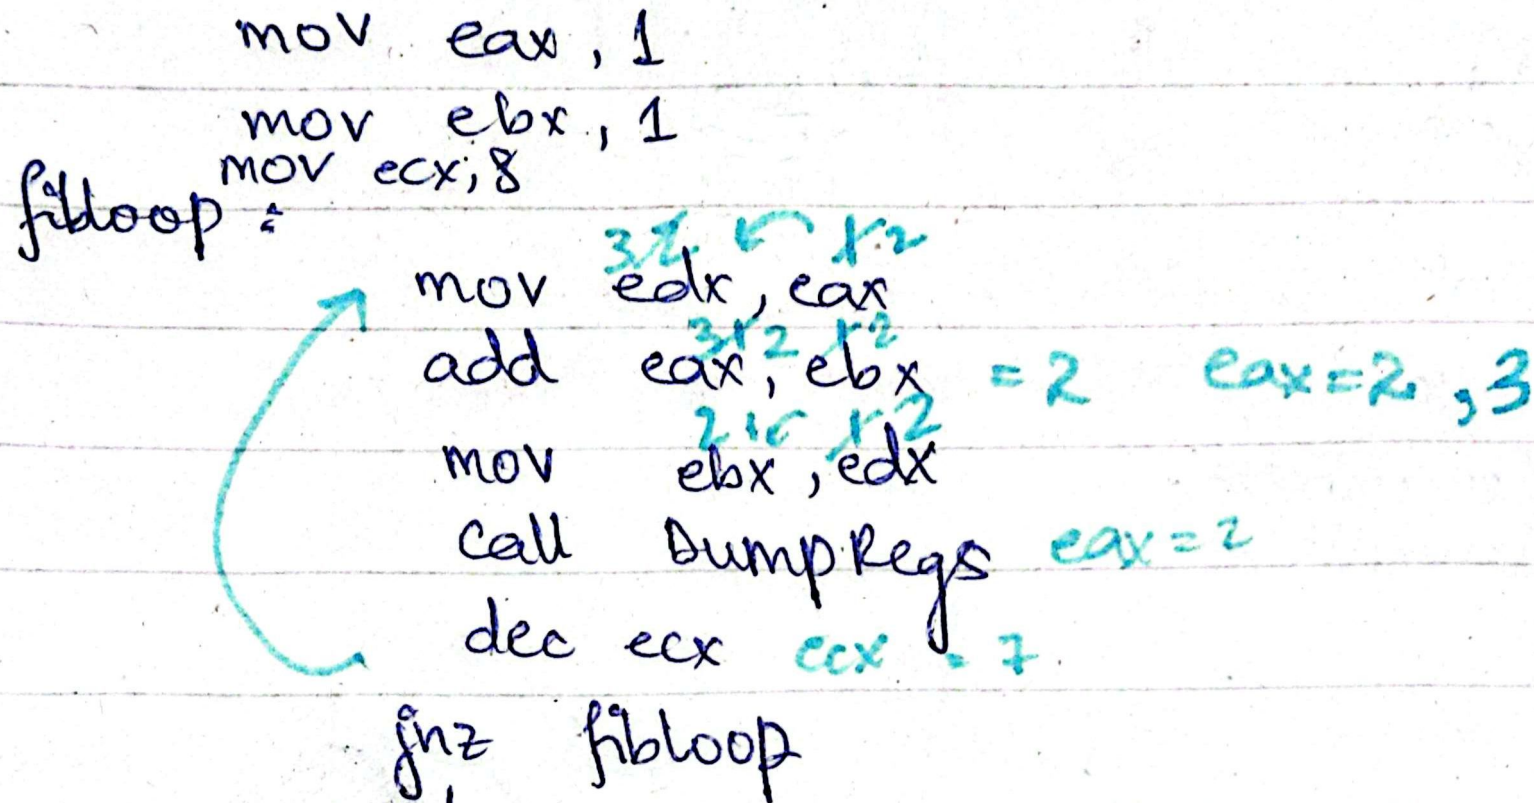 mov eax, 1
mov ebx, 1
mov ecx; 8
fibloop:
mov edx, eax
add eax, ebx = 2 eax=2, 3
mov ebx, edx
call DumpRegs eax=2
dec ecx ecx = 7
jnz fibloop